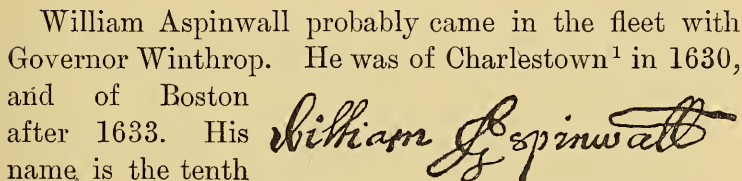 William Aspinwall probably came in the fleet with
Governor Winthrop. He was of Charlestown¹ in 1630,
and of Boston
after 1633. His
name is the tenth
William Aspinwall